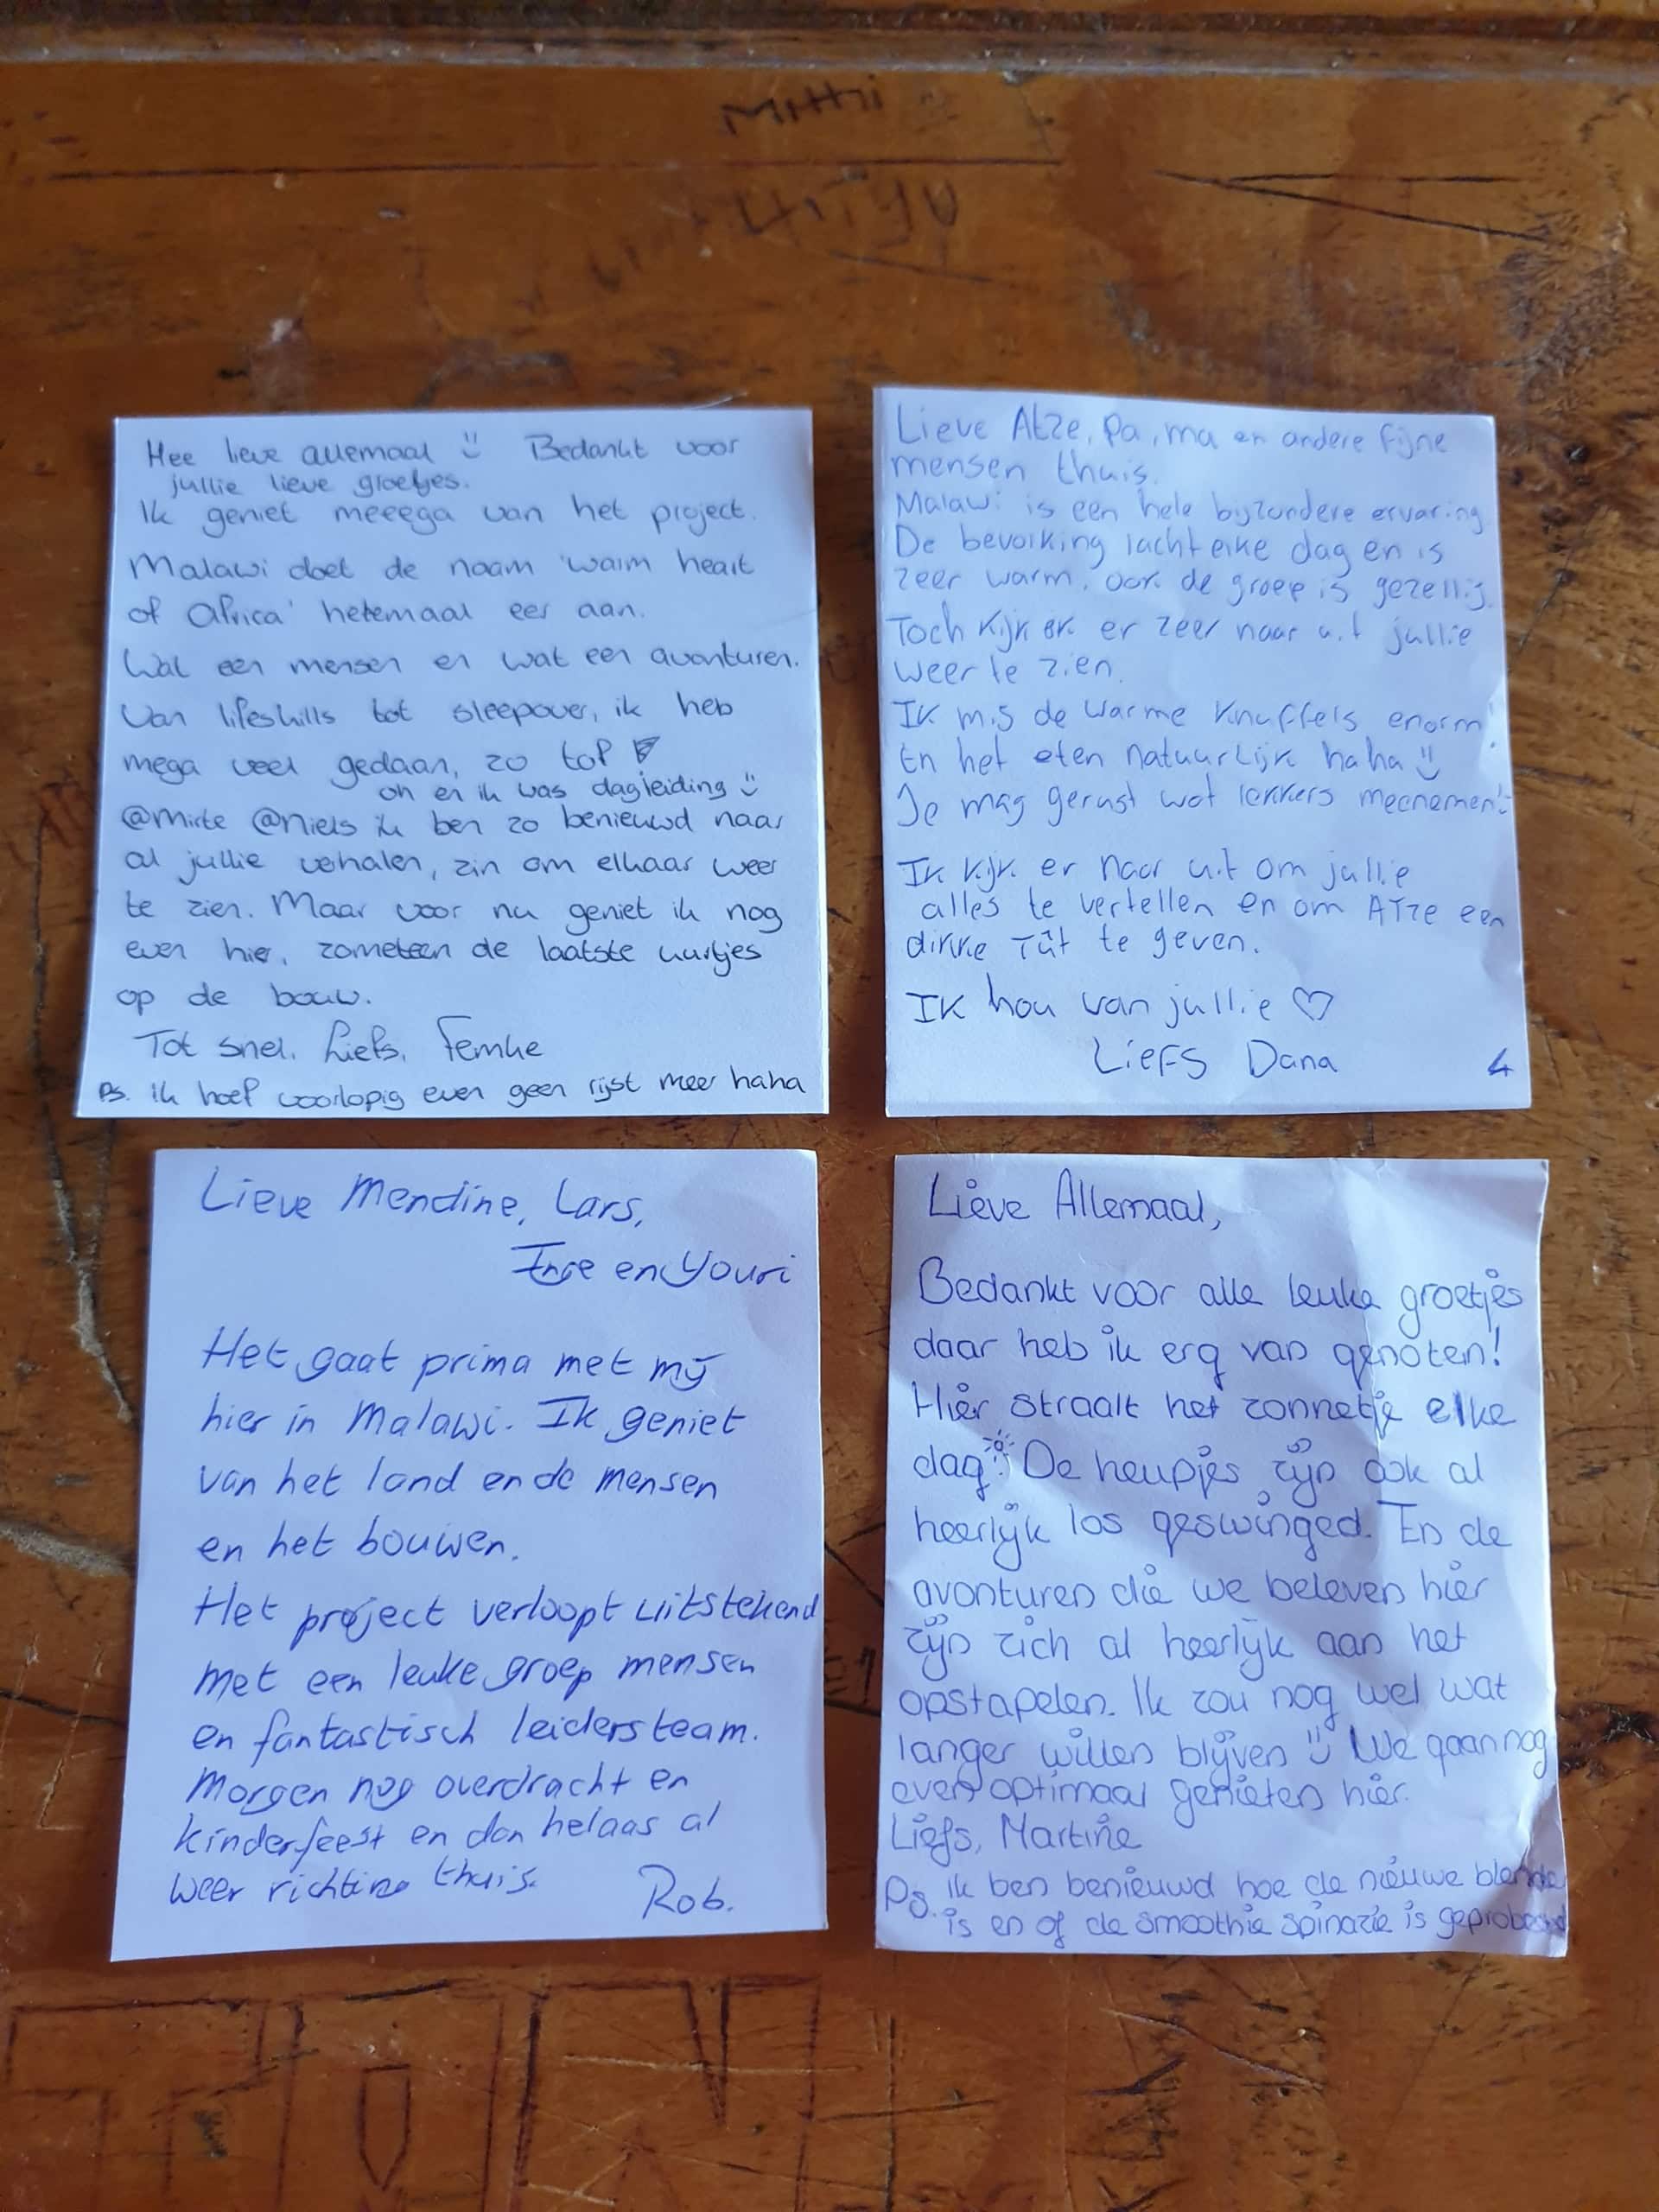 Hee lieve allemaal Bedankt voor
jullie lieve groetjes.
Ik geniet meeega van het project.
Malawi doet de naam 'warm heart
of Africa' helemaal eer aan.
Wat een mensen en wat een avonturen.
Van lifeskills tot sleepover, ik heb
mega veel gedaan, zo tof
oh en ik was dagleiding
@mirte @niels ik ben zo benieuwd naar
al jullie verhalen, zin om elkaar weer
te zien. Maar voor nu geniet ik nog
even hier, zometeen de laatste uurtjes
op de bouw.
Tot snel. Liefs, Femke
Ps. ik hoef voorlopig even geen rijst meer haha
Lieve Atze, pa, ma en andere fijne
mensen thuis.
Malawi is een hele bijzondere ervaring
De bevolking lacht elke dag en is
zeer warm. ook de groep is gezellig.
Toch kijk ik er zeer naar uit jullie
weer te zien.
Ik mis de warme knuffels enorm!
En het eten natuurlijk haha
Je mag gerust wat lekkers meenemen!
Ik kijk er naar uit om jullie
alles te vertellen en om ATze een
dikke Tût te geven.
Ik hou van jullie ♡
Liefs Dana
4
Lieve Mendine, Lars,
Inge en Youri
Het gaat prima met mij
hier in Malawi. Ik geniet
van het land en de mensen
en het bouwen.
Het project verloopt uitstekend
met een leuke groep mensen
en fantastisch leidersteam.
Morgen nog overdracht en
kinderfeest en dan helaas al
weer richting thuis.
Rob.
Lieve Allemaal,
Bedankt voor alle leuke groetjes
daar heb ik erg van genoten!
Hier straalt het zonnetje elke
dag! De heupjes zijn ook al
heerlijk los geswinged. En de
avonturen die we beleven hier
zijn zich al heerlijk aan het
opstapelen. Ik zou nog wel wat
langer willen blijven We gaan nog
even optimaal genieten hier.
Liefs, Martine
Ps. ik ben benieuwd hoe de nieuwe blender
is en of de smoothie spinazie is geprobeerd